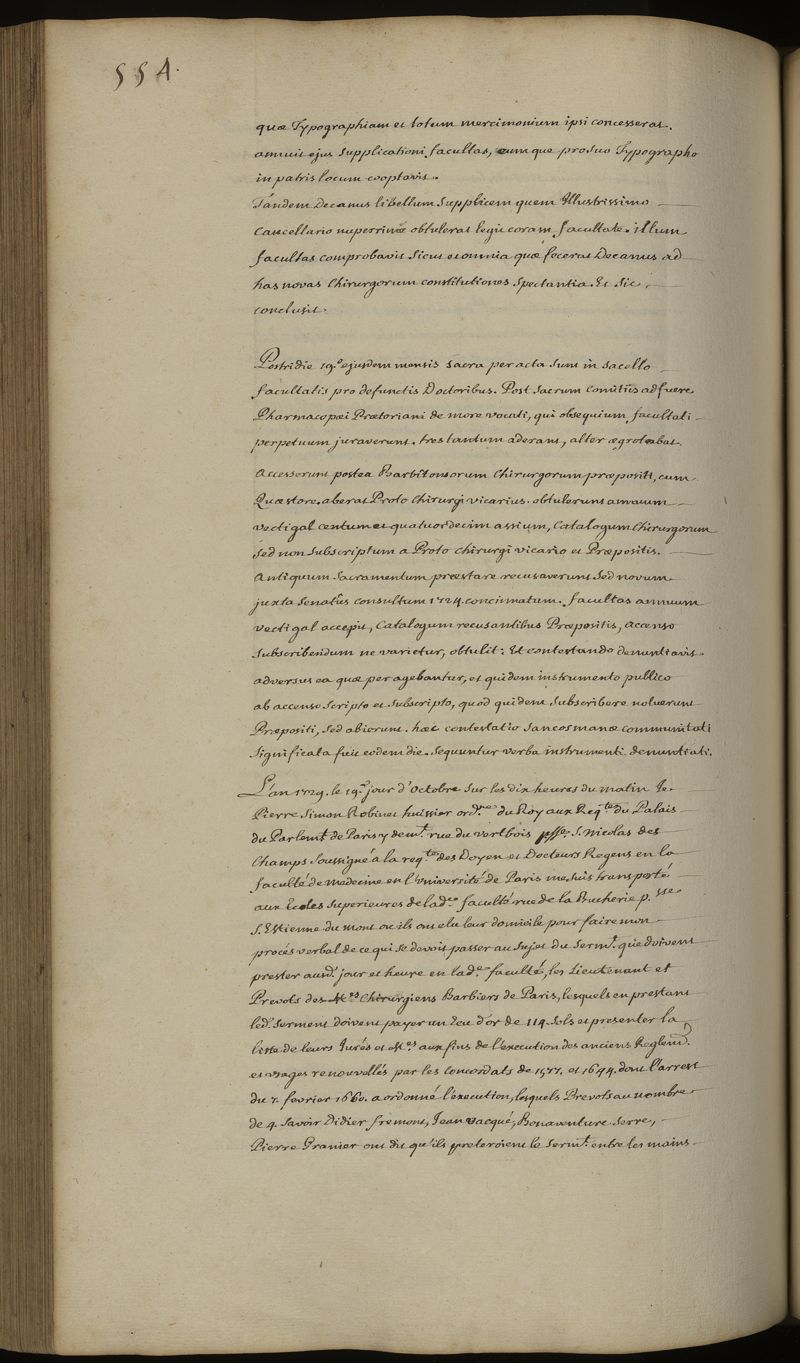 554.
quæ Typographiam et totum mercimonium ipsi concesserat.
annuit ejus supplicationi facultas, eum que pro suo Typographo
in patris locum cooptavit.
Tandem Decanus libellum supplicem quem Illustrissimo
Cancellario nuperrimè obtulerat legit coram facultate. illum
facultas comprobavit sicut et omnia quæ fecerat Decanus ad
has novas Chirurgorum constitutiones spectantia. Et sic
conclusit.
Postridie 19.º ejusdem mensis sacra per acta sunt in sacello
facultatis pro defunctis Doctoribus. Post sacrum Comitiis adfuere
Pharmacopæi Prætoriani de more vocati, qui obsequium facultati
perpetuum juraverunt. tres tantum aderant, alter ægrotabat.
Accesserunt postea Barbitonsorum Chirurgorum præpositi, cum
Quæstore. aberat Proto Chirurgi vicarius. obtulerunt annuum
vectigal centum et quatuordecim assium, Catalogum Chirurgorum
sed non subscriptum a Proto chirurgi vicario et Præpositis.
Antiquum sacramentum præstare recusaverunt sed novum
juxta senatûs consultum 1724. concinnatum. facultas annuum
vectigal accepit, Catalogum recusantibus Præpositis, accenso
subscribendum ne varietur, obtulit: Et contestando denuntiavit
adversus ea quæ per agebantur, et quidem instrumento publico
ab accenso scripto et subscripto, quod quidem subscribere noluerunt
Præpositi, sed abierunt. hæc contestatio sancosmanæ communitati
significata fuit eodem die. sequuntur verba instrumenti denuntiati.
L'an 1729. le 19.e jour d'Octobre sur les dix heures du matin Je
Pierre Simon Robinet huissier ord.re du Roy aux Req.tes du Palais
du Parlem.t de Paris y dem.t rue du vertbois psse. S. Nicolas des
Champs soussigné a la req.te des Doyen et Docteurs Regens en la
faculté de Medecine en l'Université de Paris me suis transporté
aux Ecoles superieures de lad.e faculté rue de la Bucherie p.sse
S. Estienne du mont ou ils ont elu leur domicile pour faire mon
procés verbal de ce qui se devoit passer au sujet du serm.t que doivent
prester aud. jour et heure en lad.e faculté, les Lieutenant et
Prevots des M.es Chirurgiens Barbiers de Paris, lesquels en prestant
led. serment doivent payer un Ecu d'or de 114. sols et presenter la
liste de leurs Jurés et M.es aux fins de l'execution des anciens Reglem.s
et usages renouvellés par les concordats de 1577. et 1644. dont l'arrest
du 7. fevrier 1660. a ordonné l'execution, lesquels Prevots au nombre
de 4. savoir Didier fremont, Jean vacqué, Bonaventure serre,
Pierre Granier ont dit qu'ils preteroient le serm.t entre les mains